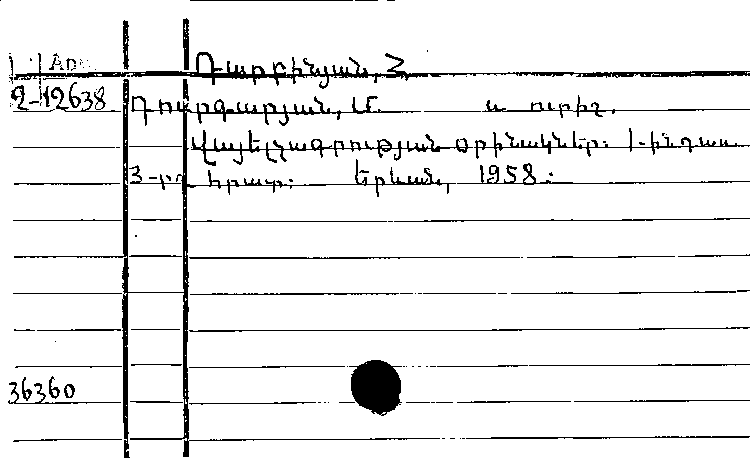 Դարբինյան, Հ.
2-12638 Դուրգարյան, Մ. և ուրիշ.
Վայելչագրության օրինակներ: 1-ին դաս.
3-րդ հրատ: Երևան, 1958:
36360